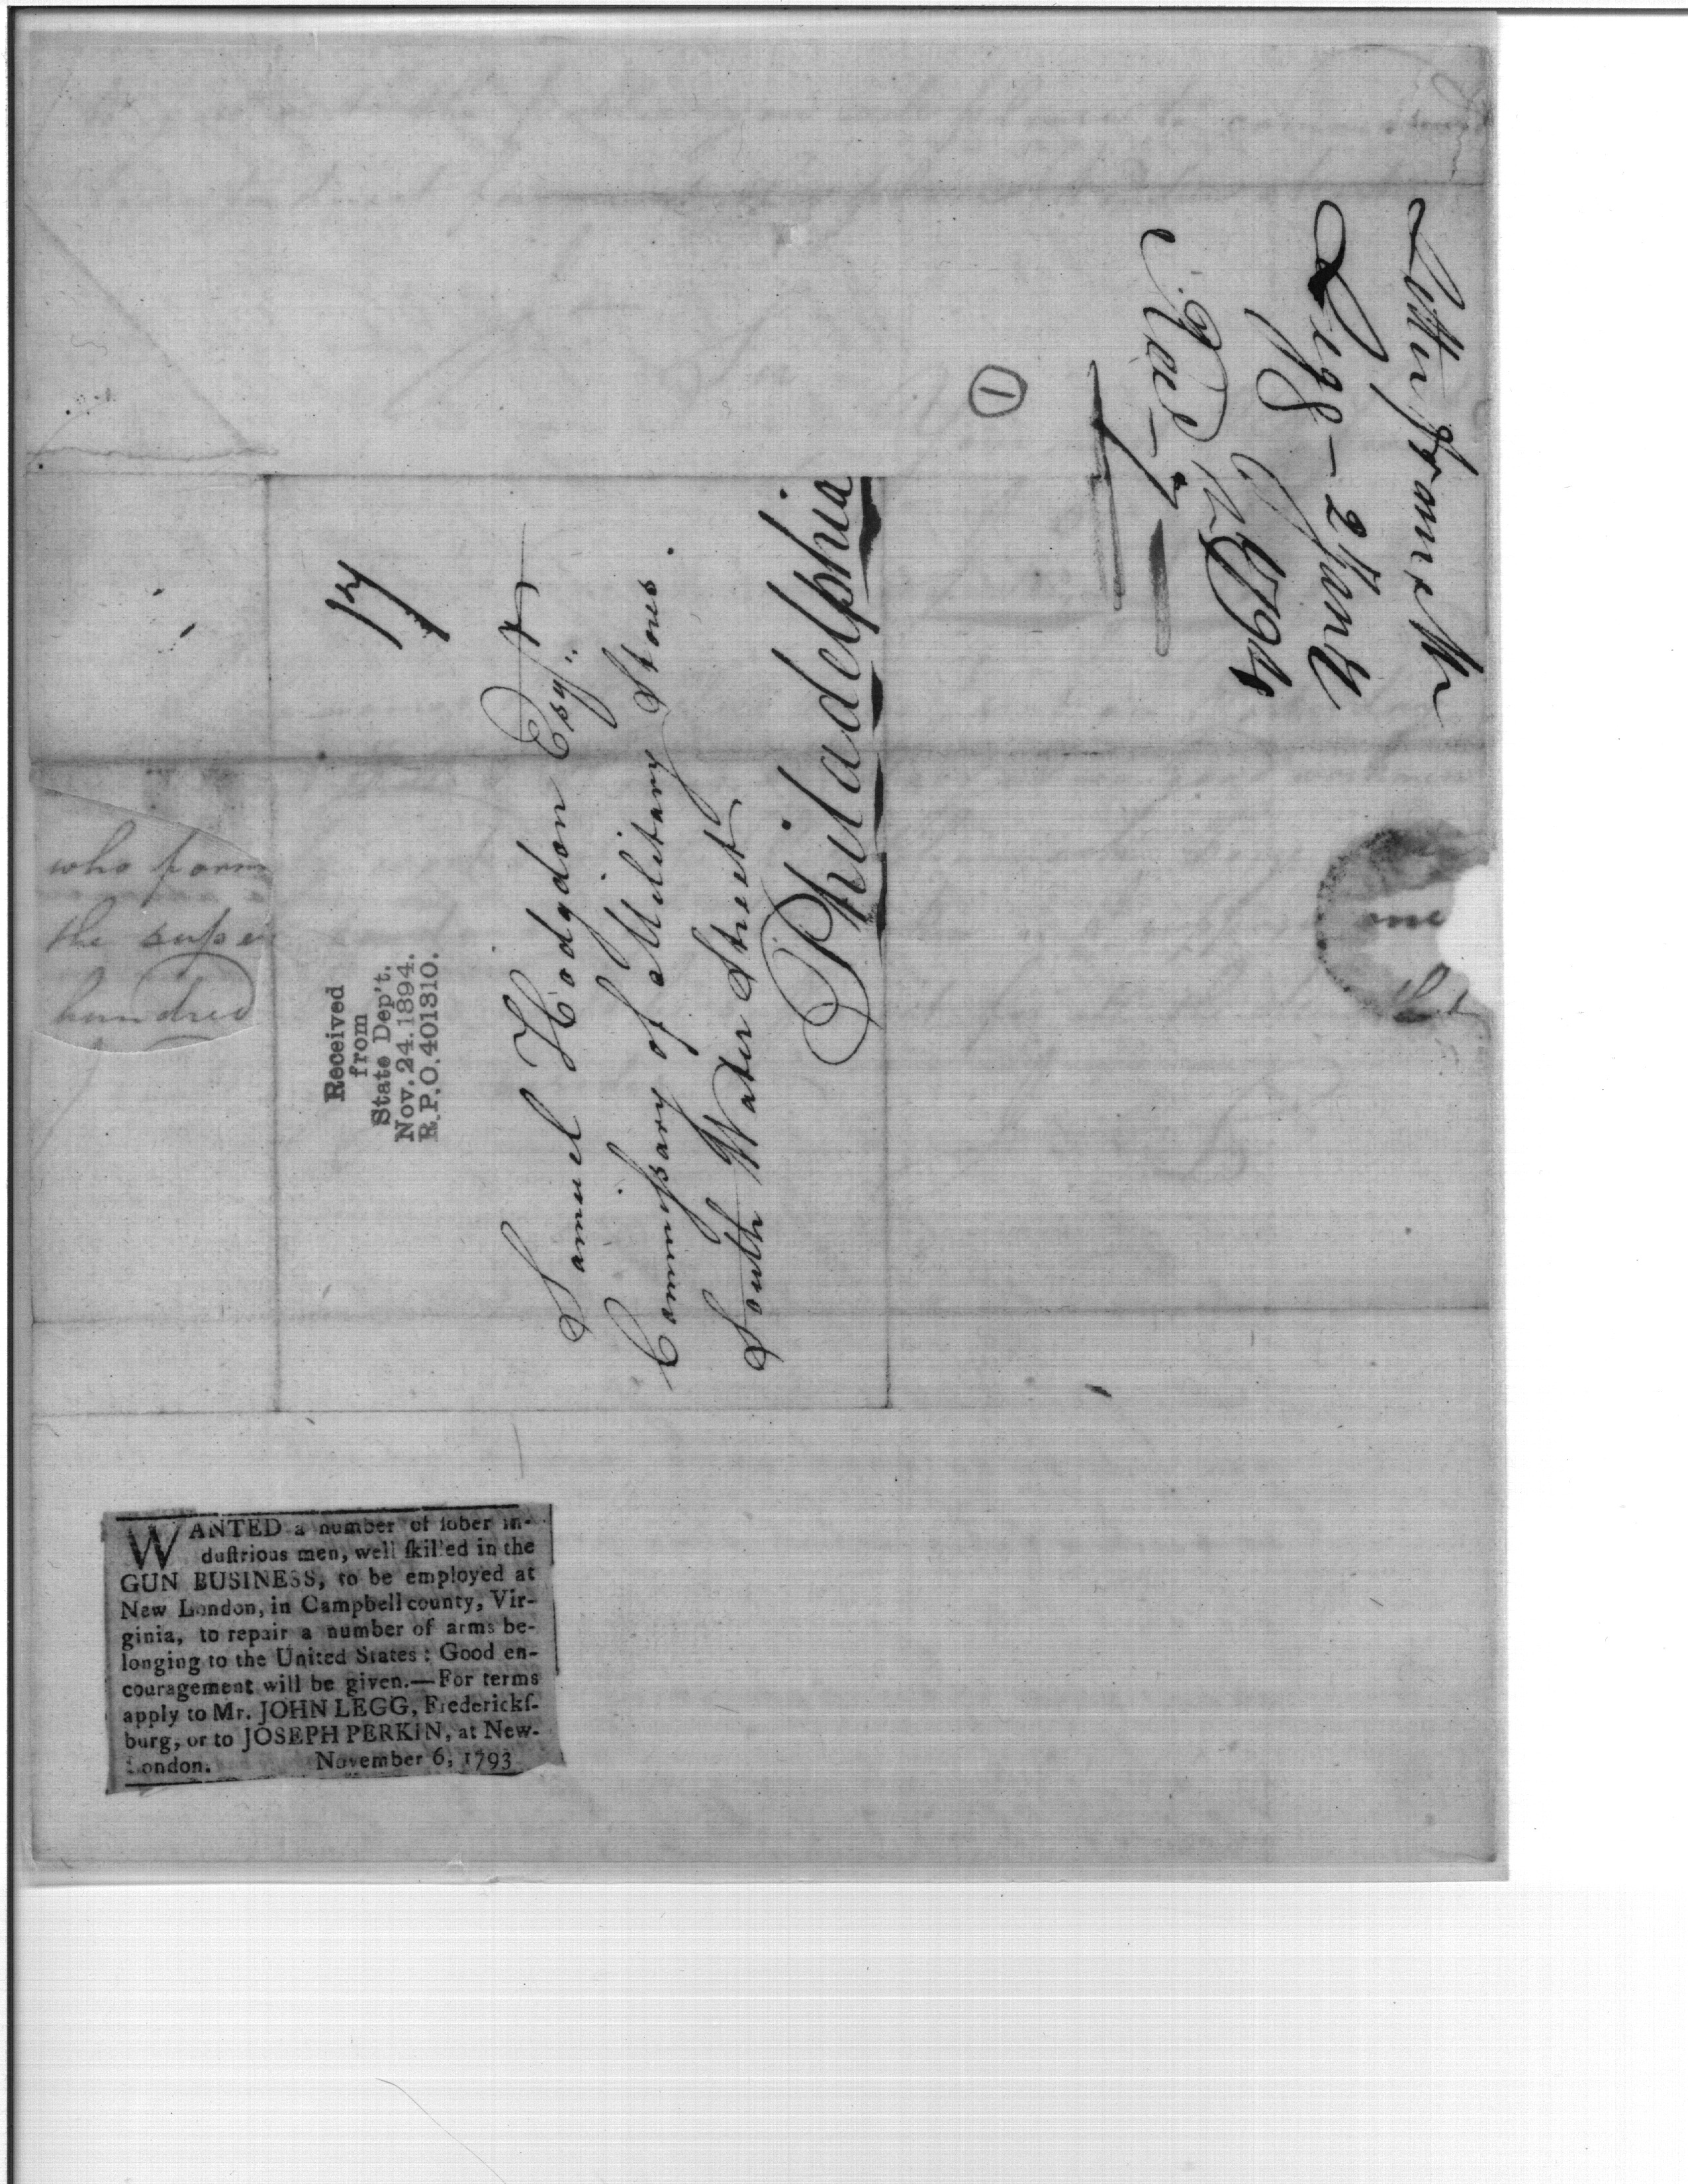 Letter from Mr
Legg - 2 Jany
1794
Rec'd - 7
1
17
Samuel Hodgdon Esqr
Commissary of Military Stores.
South Water Street
Philadelphia
Received
from
State Dep't.
Nov. 24. 1894.
R.P.O. 401310.
who form
the super
hundred
one
WANTED a number of ſober in-
duſtrious men, well ſkilled in the
GUN BUSINESS, to be employed at
New London, in Campbell county, Vir-
ginia, to repair a number of arms be-
longing to the United States: Good en-
couragement will be given.—For terms
apply to Mr. JOHN LEGG, Frederickſ-
burg, or to JOSEPH PERKIN, at New-
London. November 6, 1793